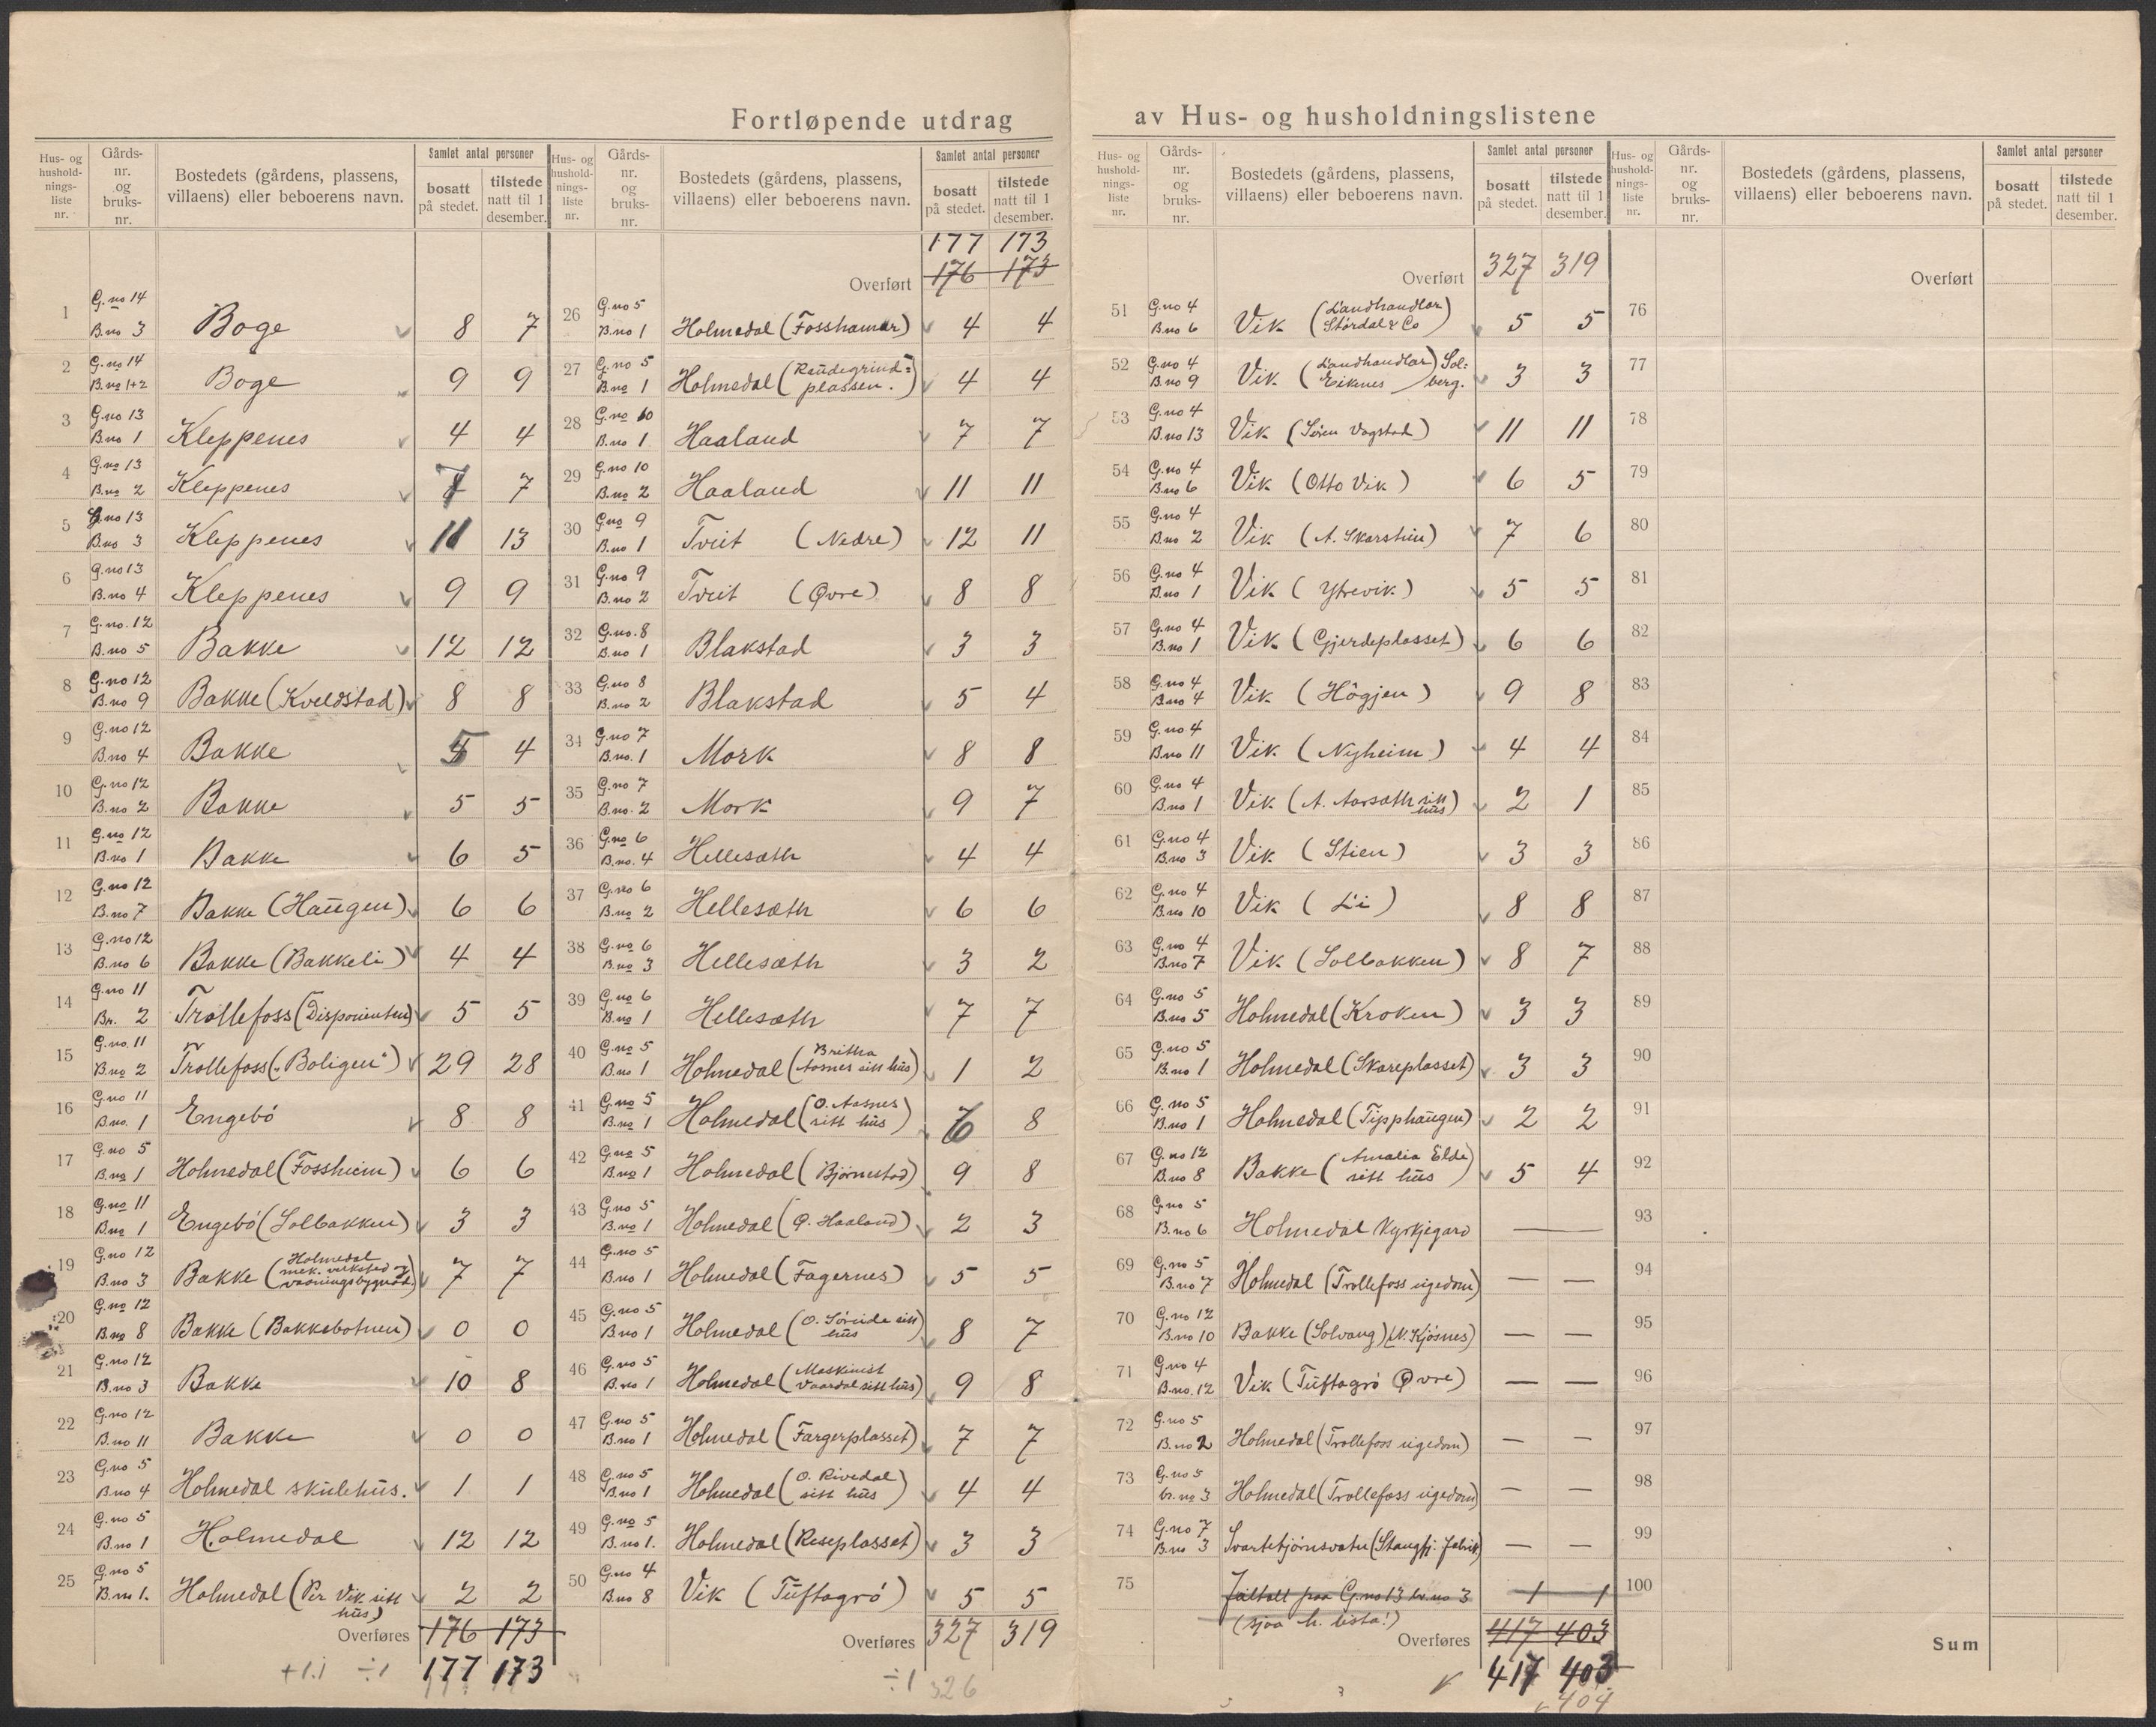 Fortløpende utdrag av Hus- og husholdningslistene
Hus- og hushold-nings-liste nr. | Gårds-nr. og bruks-nr. | Bostedets (gårdens, plassens, villaens) eller beboerens navn. | Samlet antal personer | bosatt på stedet. | tilstede natt til 1 desember.
1 G.no 14 B.no 3 Boge 8 7
2 G.no 14 B.no 1+2 Boge 9 9
3 G.no 13 B.no 1 Kleppenes 4 4
4 G.no 13 B.no 2 Kleppenes 7 7
5 G.no 13 B.no 3 Kleppenes 11 13
6 G.no 13 B.no 4 Kleppenes 9 9
7 G.no. 12 B.no 5 Bakke 12 12
8 G.no 12 B.no 9 Bakke (Kveldstad) 8 8
9 G.no 12 B.no 4 Bakke 5 4
10 G.no 12 B.no 2 Bakke 5 5
11 G.no 12 B.no 1 Bakke 6 5
12 G.no 12 B.no 7 Bakke (Haugen) 6 6
13 G.no 12 B.no 6 Bakke (Bakkeli) 4 4
14 G.no 11 Bn. 2 Trollefoss (Disponenten) 5 5
15 G.no. 11 B.no 2 Trollefoss („Boligen“) 29 28
16 G.no 11 B.no. 1 Engebó 8 8
17 G.no 5 B.no 1 Holmedal (Fossheim) 6 6
18 G.no 11 B.no 1 Engebó (Solbakken) 3 3
19 G.no 12 B.no 3 Bakke (Holmedal mek. verksted og vaaningsbygnad) 7 7
20 G.no 12 B.no 8 Bakke (Bakkebotnen) 0 0
21 G.no 12 B.no 3 Bakke 10 8
22 G.no 12 B.no 11 Bakke 0 0
23 G.no 5 B.no 4 Holmedal skulehus. 1 1
24 G.no 5 B.no 1 Holmedal 12 12
25 G.no 5 B.no 1. Holmedal (Per Vik sitt hus) 2 2
Overføres 176 173
+1. ÷1 177 173
Hus- og hushold-nings-liste nr. | Gårds-nr. og bruks-nr. | Bostedets (gårdens, plassens, villaens) eller beboerens navn. | Samlet antal personer | bosatt på stedet. | tilstede natt til 1 desember.
177 173
Overført 176 173
26 G.no 5 B.no 1 Holmedal (Fosshamar) 4 4
27 G.no 5 B.no 1 Holmedal (Raudegrind=plassen.) 4 4
28 G.no 10 B.no 1 Haaland 7 7
29 G.no 10 B.no 2 Haaland 11 11
30 G.no 9 B.no 1 Tveit (Nedre) 12 11
31 G.no 9 B.no 2 Tveit (Øvre) 8 8
32 G.no. 8 B.no 1 Blakstad 3 3
33 G.no 8 B.no 2 Blakstad 5 4
34 G.no 7 B.no. 1 Mork 8 8
35 G.no 7 B.no. 2 Mork 9 7
36 G.no 6 B.no. 4 Hellesæth 4 4
37 G.no 6 B.no 2 Hellesæth 6 6
38 G.no 6 B.no 3 Hellesæth 3 2
39 G.no 6 B.no 1 Hellesæth 7 7
40 G.no 5 B.no 1 Holmedal (Britha Aasnes sitt hus) 1 2
41 G.no 5 B.no 1 Holmedal (O. Aasnes sitt hus) 8
42 G.no 5 B.no 1 Holmedal (Bjórnestad) 9 8
43 G.no 5 B.no 1 Holmedal (O. Haaland) 2 3
44 G.no 5 B.no 1 Holmedal (Fagernes) 5 5
45 G.no 5 B.no 1 Holmedal (O. Sóreide sitt hus) 8 7
46 G.no 5 B.no 1 Holmedal (Maskinist Vaardal sitt hus) 9 8
47 G.no 5 B.no 1 Holmedal (Fargerplasset) 7 7
48 G.no 5 B.no 1 Holmedal (O. Rivedal sitt hus) 4 4
49 G.no 5 B.no 1. Holmedal (Reseplasset) 3 3
50 G.no 4 B.no 8 Vik (Tuftagró) 5 5
Overføres 327 319
÷1 326
Hus- og hushold-nings-liste nr. | Gårds-nr. og bruks-nr. | Bostedets (gårdens, plassens, villaens) eller beboerens navn. | Samlet antal personer | bosatt på stedet. | tilstede natt til 1 desember.
Overført 327 319
51 G.no 4 B.no 6 Vik (Landhandlar Stórdal & Co) 5 5
52 G.no 4 B.no 9 Vik (Landhandlar Eiknes) Sol=berg. 3 3
53 G.no 4 B.no 13 Vik (Sóren Vagstad) 11 11
54 G.no 4 B.no 6 Vik (Otto Vik) 6 5
55 G.no 4 B.no 2 Vik (A. Skarstein) 7 6
56 G.no 4 B.no 1 Vik (Ytrevik) 5 5
57 G.no 4 B.no 1 Vik (Gjerdeplasset) 6 6
58 G.no 4 B.no 4 Vik (Hôgjen) 9 8
59 G.no 4 B.no 11 Vik (Nyheim) 4 4
60 G.no 4 B.no 1 Vik (A. Aarsæth sitt hus) 2 1
61 G.no 4 B.no 3 Vik (Stien) 3 3
62 G.no 4 B.no 10 Vik (Li) 8 8
63 G.no 4 B.no 7 Vik (Solbakken) 8 7
64 G.no 5 B.no 5 Holmedal (Kroken) 3 3
65 G.no 5 B.no 1 Holmedal (Skareplasset) 3 3
66 G.no 5 B.no 1 Holmedal (Tipphaugen) 2 2
67 G.no 12 B.no 8 Bakke (Amalia Elde sitt hus) 5 4
68 G.no 5 B.no 6 Holmedal Kyrkjegard —
69 G.no 5 B.no 7 Holmedal (Trollefoss eigedom) — —
70 G.no 12 B.no 10 Bakke (Solvang) (N. Kjósnes) — —
71 G.no 4 B.no. 12 Vik (Tuftagró Øvre) — —
72 G.no 5 B.no 2 Holmedal (Trollefoss eigedom) — —
73 G.no 5 br. no 3 Holmedal (Trollefoss eigedom) — —
74 G.no 7 B.no 3 Svartetjórnsvatn (Stangfj. fabrik) — —
75 fältalt paa G.no 13 br.no 3 1 1
(sjaa h. lista!)
Overføres 417 403
417 403
404
Hus- og hushold-nings-liste nr. | Gårds-nr. og bruks-nr. | Bostedets (gårdens, plassens, villaens) eller beboerens navn. | Samlet antal personer | bosatt på stedet. | tilstede natt til 1 desember.
Overført
76
77
78
79
80
81
82
83
84
85
86
87
88
89
90
91
92
93
94
95
96
97
98
99
100
Sum